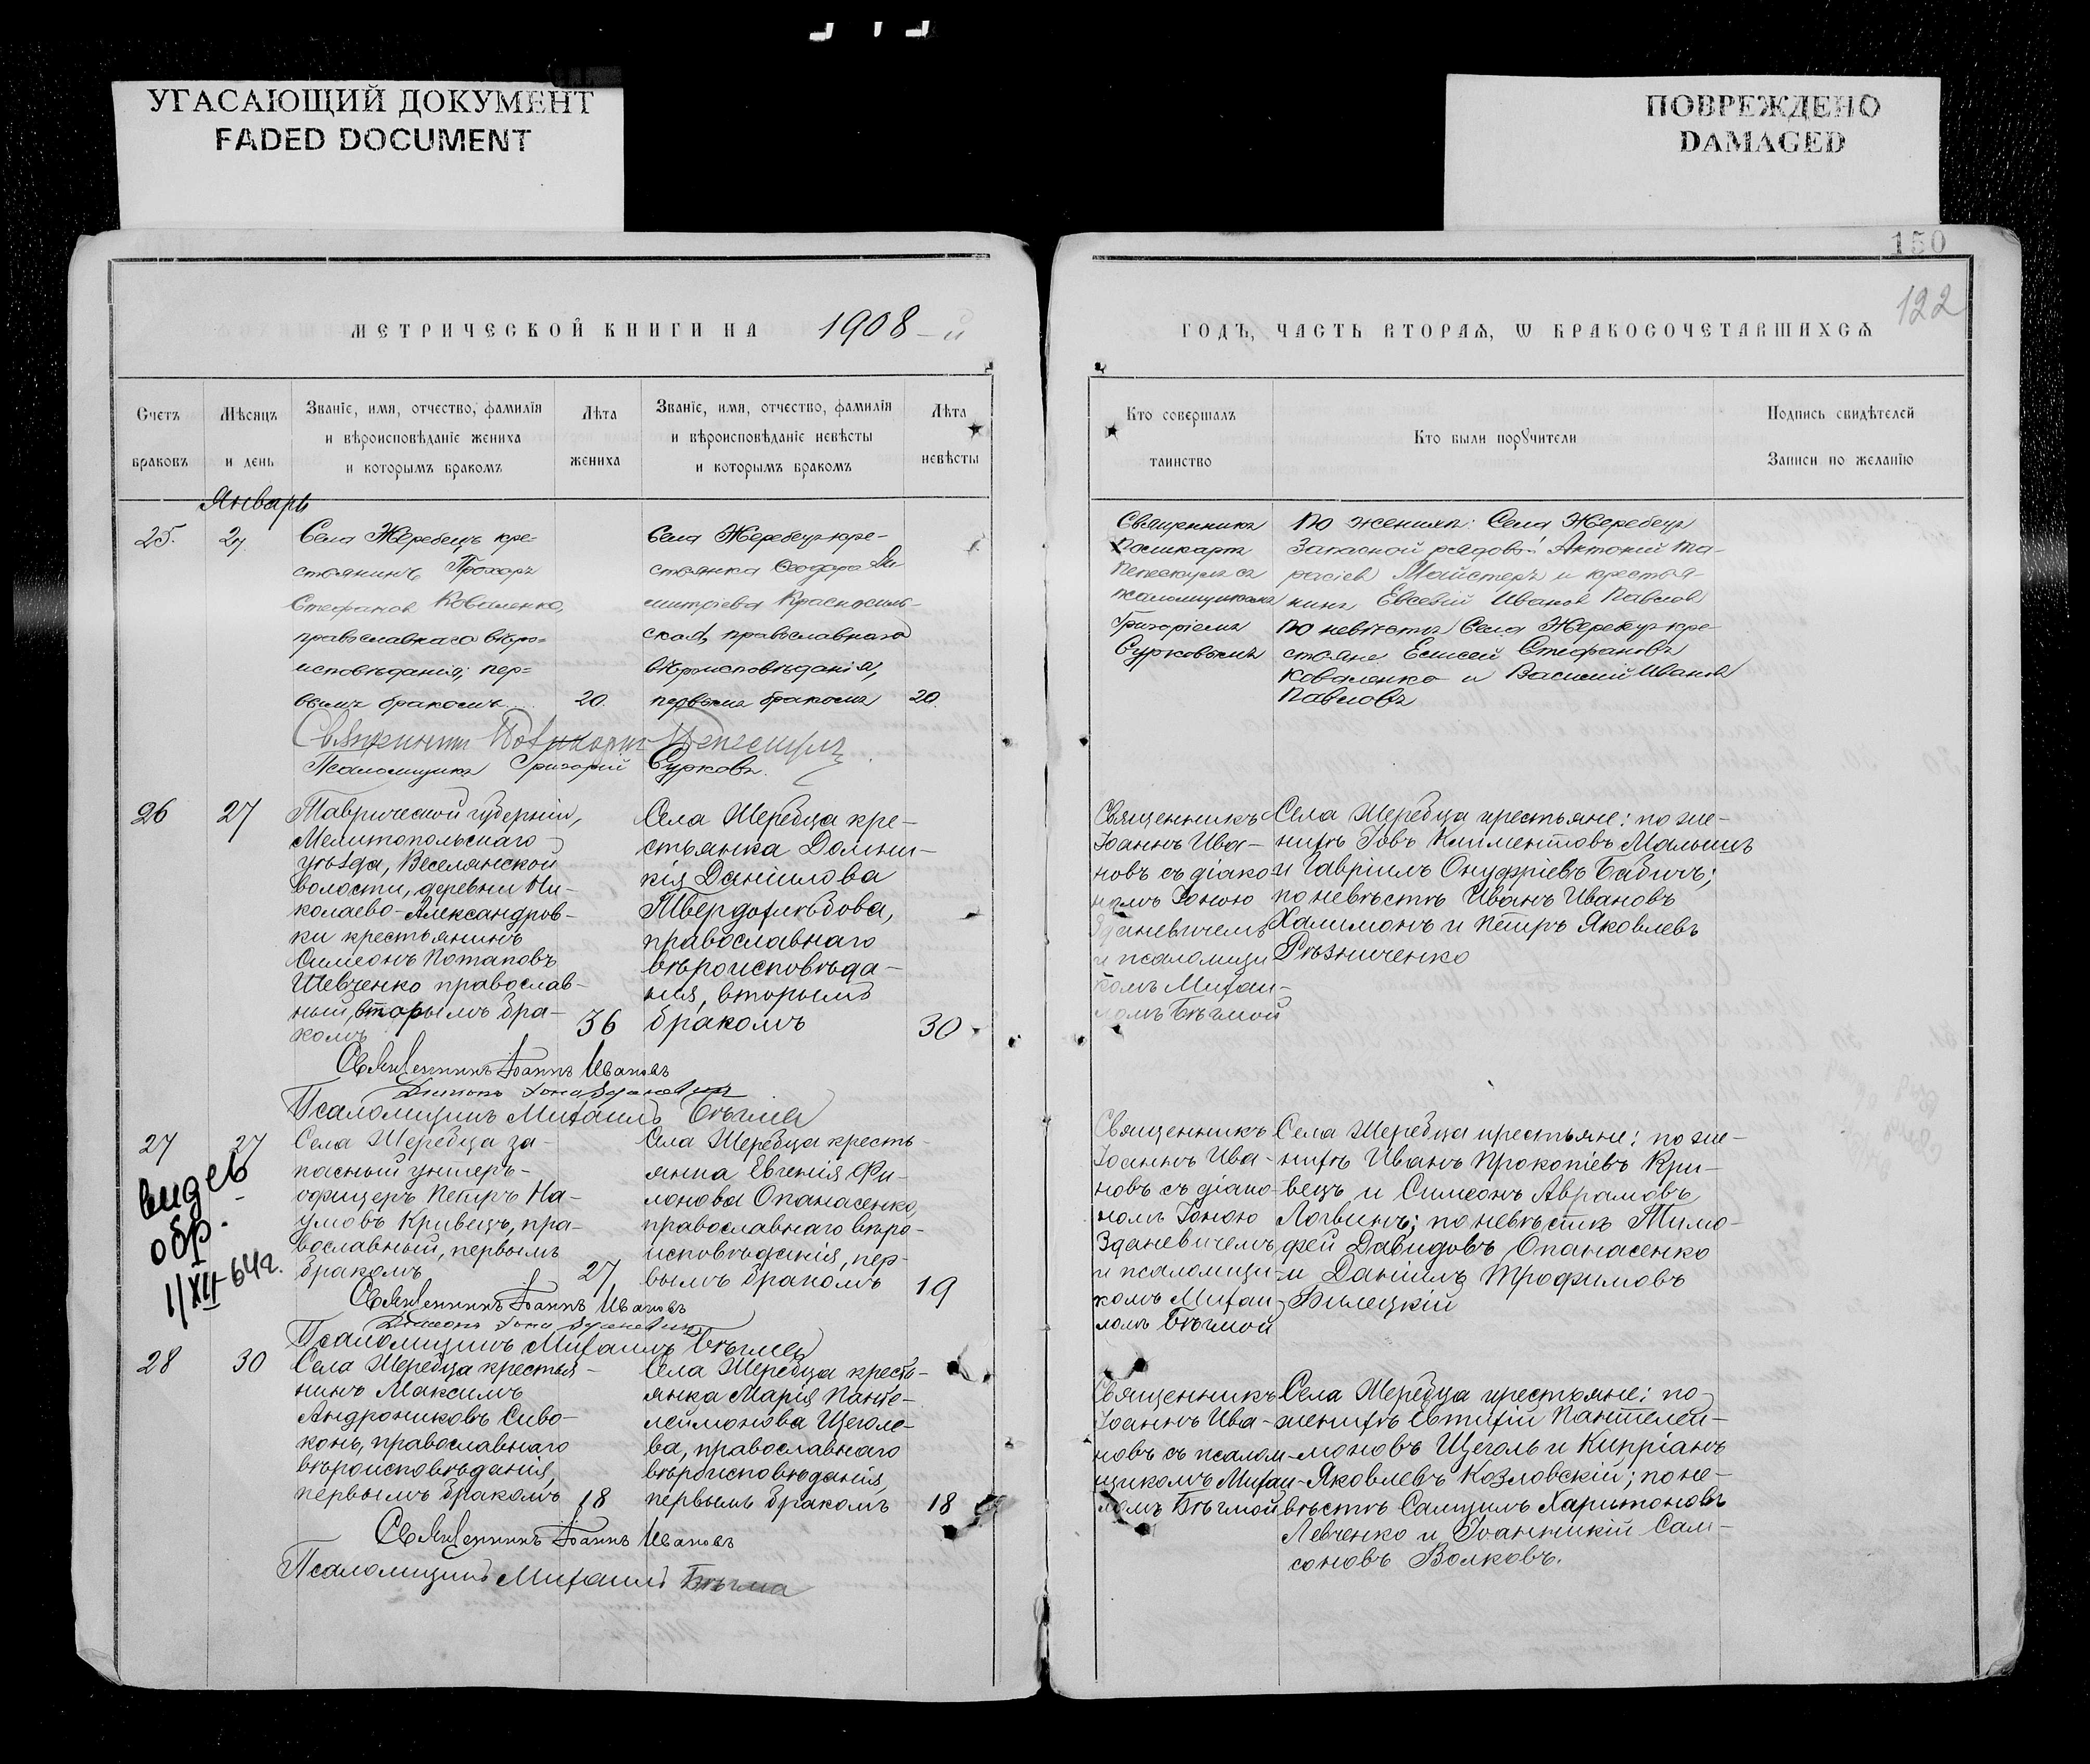 УГАСАЮЩИЙ ДОКУМЕНТ
FADED DOCUMENT
ПОВРЕЖДЕНО
DAMAGED
150
122
МЕТРИЧЕСКОЙ КНИГИ НА 1908-й
ГОДЪ, ЧАСТЬ ВТОРАЯ, Ѡ БРАКОСОЧЕТАВШИХСѦ
Счетъ
браковъ
Мѣсяцъ
и день
Званіе, имя, отчество, фамилія
и вѣроисповѣданіе жениха
и которымъ бракомъ
Лѣта
жениха
Званіе, имя, отчество, фамилія
и вѣроисповѣданіе невѣсты
и которымъ бракомъ
Лѣта
невѣсты
Кто совершалъ
таинство
Кто были порꙋчители
Подпись свидѣтелей
Записи по желанію
Январь
25.
27
Села Жеребецъ кре-
стьянинъ Прохоръ
Стефановъ Коваленко,
православнаго вѣро-
исповѣданія; пер-
вымъ бракомъ
20.
Села Жеребецъ кре-
стьянка Ѳеодора Ди-
митріева Красносель-
ская, православнаго
вѣроисповѣданія,
первымъ бракомъ
20.
Священникъ
Поликарпъ
съ
псаломщикомъ
Григоріемъ
Сурковымъ
По женихѣ: Села Жеребецъ
Запасной рядовой Антоній Та-
расіевъ Майстеръ и крестья-
нинъ Евсевій Ивановъ Павловъ
по невѣстѣ Села Жеребецъ кре-
стьяне Елисей Стефановъ
Коваленко и Василій Ивановъ
Павловъ
Священникъ Поликарпъ
Псаломщикъ Григорій Сурковъ.
26
27
Таврической губерніи,
Мелитопольскаго
уѣзда, Веселянской
волости, деревни Ни-
колаево-Александров-
ки крестьянинъ
Симеонъ Потаповъ
Шевченко православ-
ный, вторымъ бра-
комъ
36
Села Жеребца кре-
стьянка Домни-
кія Даніилова
Твердохлѣбова,
православнаго
вѣроисповѣда-
нія, вторымъ
бракомъ
30
Священникъ
Іоаннъ Ива-
новъ съ діако-
номъ Іоною
Зданевичемъ
и псаломщи-
комъ Михаи-
ломъ Бѣгмой
Села Жеребца крестьяне: по же-
нихѣ Іовъ Климентовъ Малышъ
и Гавріилъ Онуфріевъ Бабичъ;
по невѣстѣ Иванъ Ивановъ
Халимонъ и Петръ Яковлевъ
Рѣзниченко
Священникъ Іоаннъ Ивановъ
Діаконъ Іона Зданевичъ
Псаломщикъ Михаилъ Бѣгма
27
27
видев
обр.
1/XII-64г.
Села Жеребца за-
пасный унтеръ-
офицеръ Петръ На-
умовъ Кривецъ, пра-
вославный, первымъ
бракомъ
27
Села Жеребца кресть-
янка Евгенія Фи-
лонова Опанасенко,
православнаго вѣро-
исповѣданія, пер-
вымъ бракомъ
19
Священникъ
Іоаннъ Ива-
новъ съ діако-
номъ Іоною
Зданевичемъ
и псаломщи-
комъ Михаи-
ломъ Бѣгмой
Села Жеребца крестьяне: по же-
нихѣ Иванъ Прокопіевъ Кри-
вецъ и Симеонъ Аврамовъ
Логвинъ; по невѣстѣ Тимо-
фей Давидовъ Опанасенко
и Даніилъ Трофимовъ
Билецкій
Священникъ Іоаннъ Ивановъ
Діаконъ Іона Зданевичъ
Псаломщикъ Михаилъ Бѣгма
28
30
Села Жеребца крестья-
нинъ Максимъ
Андрониковъ Сиво-
конь, православнаго
вѣроисповѣданія,
первымъ бракомъ
18
Села Жеребца кресть-
янка Марія Панте-
леимонова Щеголе-
ва, православнаго
вѣроисповѣданія,
первымъ бракомъ
18
Священникъ
Іоаннъ Ива-
новъ съ псалом-
щикомъ Михаи-
ломъ Бѣгмой
Села Жеребца крестьяне: по
женихѣ Евтихій Пантелеи-
моновъ Щеголь и Кипріанъ
Яковлевъ Козловскій; по не-
вѣстѣ Самуилъ Харитоновъ
Левченко и Іоанникій Сам-
соновъ Волковъ.
Священникъ Іоаннъ Ивановъ
Псаломщикъ Михаилъ Бѣгма